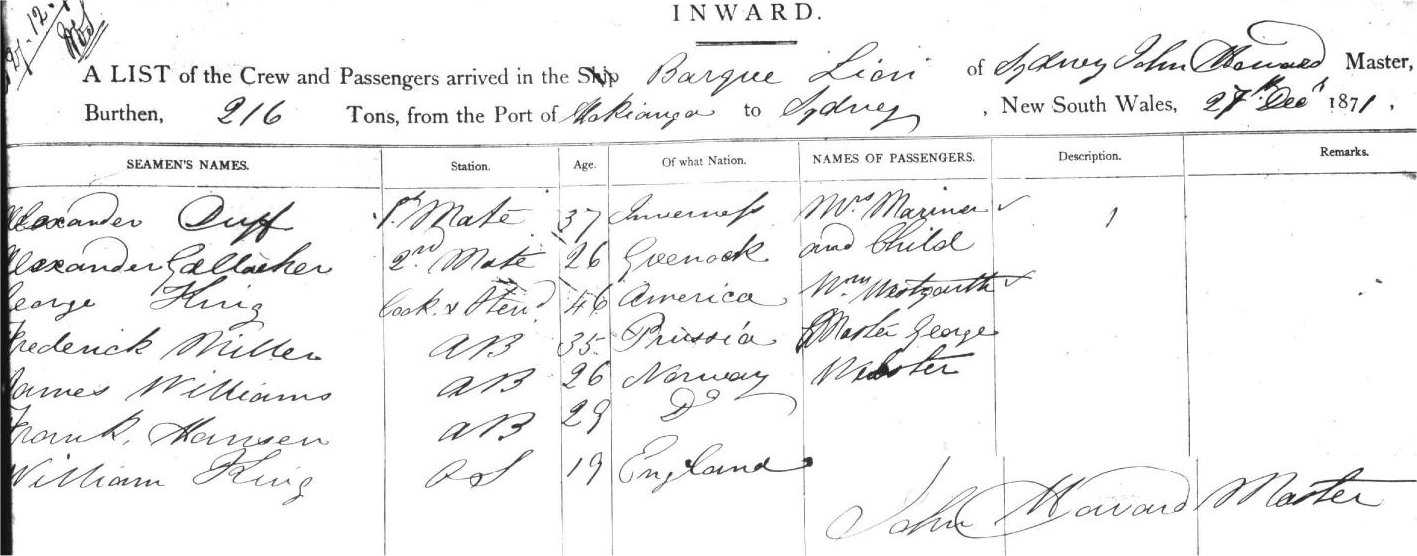 27.12.
INWARD.
A LIST of the Crew and Passengers arrived in the Ship Barque Lion of Sydney John Howard Master,
Burthen, 216 Tons, from the Port of Hokianga to Sydney, New South Wales, 27th Decr 1871.
SEAMEN'S NAMES. Station. Age. Of what Nation. NAMES OF PASSENGERS. Description. Remarks.
Alexander Duff 1st Mate 37 Inverness Mrs Mariner 1
Alexander Gallacher 2nd Mate 26 Greenock and Child
George King Cook & Stewd 46 America Wm Westgarth
Frederick Miller AB 35 Prussia Master George
James Williams AB 26 Norway Webster
Frank Hansen AB 29 Do
William King OS 19 England
John Howard Master